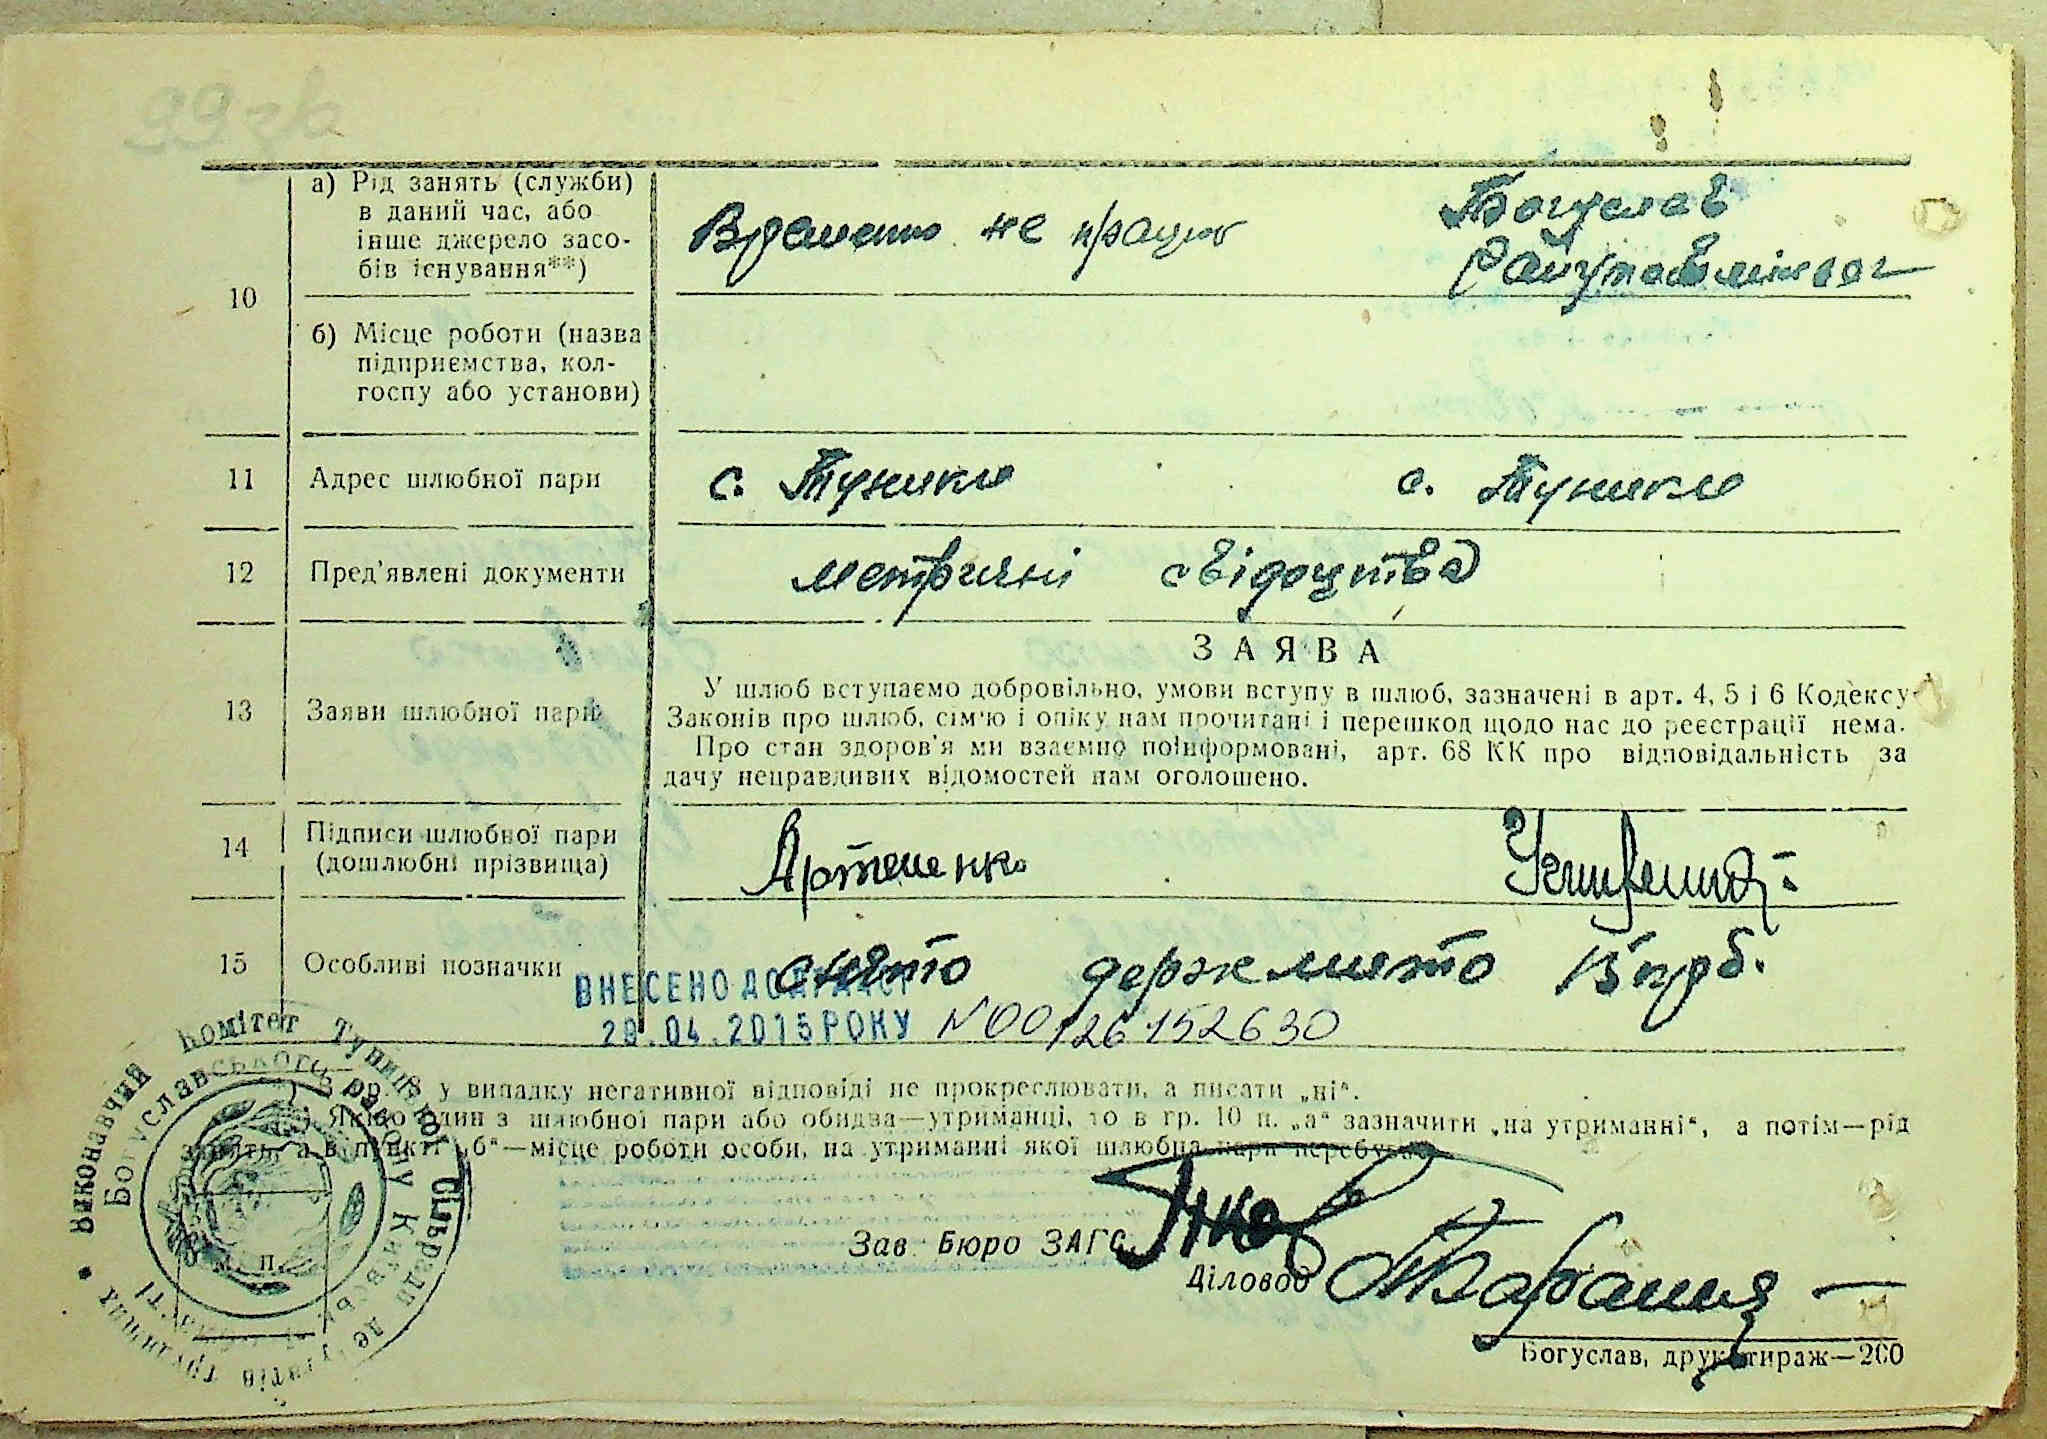 10
а) Рід занять (служби)
в даний час, або
інше джерело засо-
бів існування**)
Временно не працює
Богуслав
б) Місце роботи (назва
підприємства, кол-
госпу або установи)
11
Адрес шлюбної пари
с. Туники
с. Туники
12
Пред'явлені документи
метричні свідоцтва
13
Заяви шлюбної пари
ЗАЯВА
У шлюб вступаємо добровільно, умови вступу в шлюб, зазначені в арт. 4, 5 і 6 Кодексу
Законів про шлюб, сім'ю і опіку нам прочитані і перешкод щодо нас до реєстрації нема.
Про стан здоров'я ми взаємно поінформовані, арт. 68 КК про відповідальність за
дачу неправдивих відомостей нам оголошено.
14
Підписи шлюбної пари
(дошлюбні прізвища)
Артеменко
15
Особливі позначки
снято держмито 15 крб.
ВНЕСЕНО ДО ДРАЦСГ
29.04.2015 РОКУ N 00126152630
у випадку негативної відповіді не прокреслювати, а писати „ні“.
Якщо один з шлюбної пари або обидва—утриманці, то в гр. 10 п. „а“ зазначити „на утриманні“, а потім—рід
занять, а в пункті „б“—місце роботи особи, на утриманні якої шлюбна пара перебуває.
Виконавчий Комітет Туницької Сільради депутатів трудящих
Богуславського району Київської області
М. П.
Зав. Бюро ЗАГС
Діловод
Богуслав, друк. тираж—200